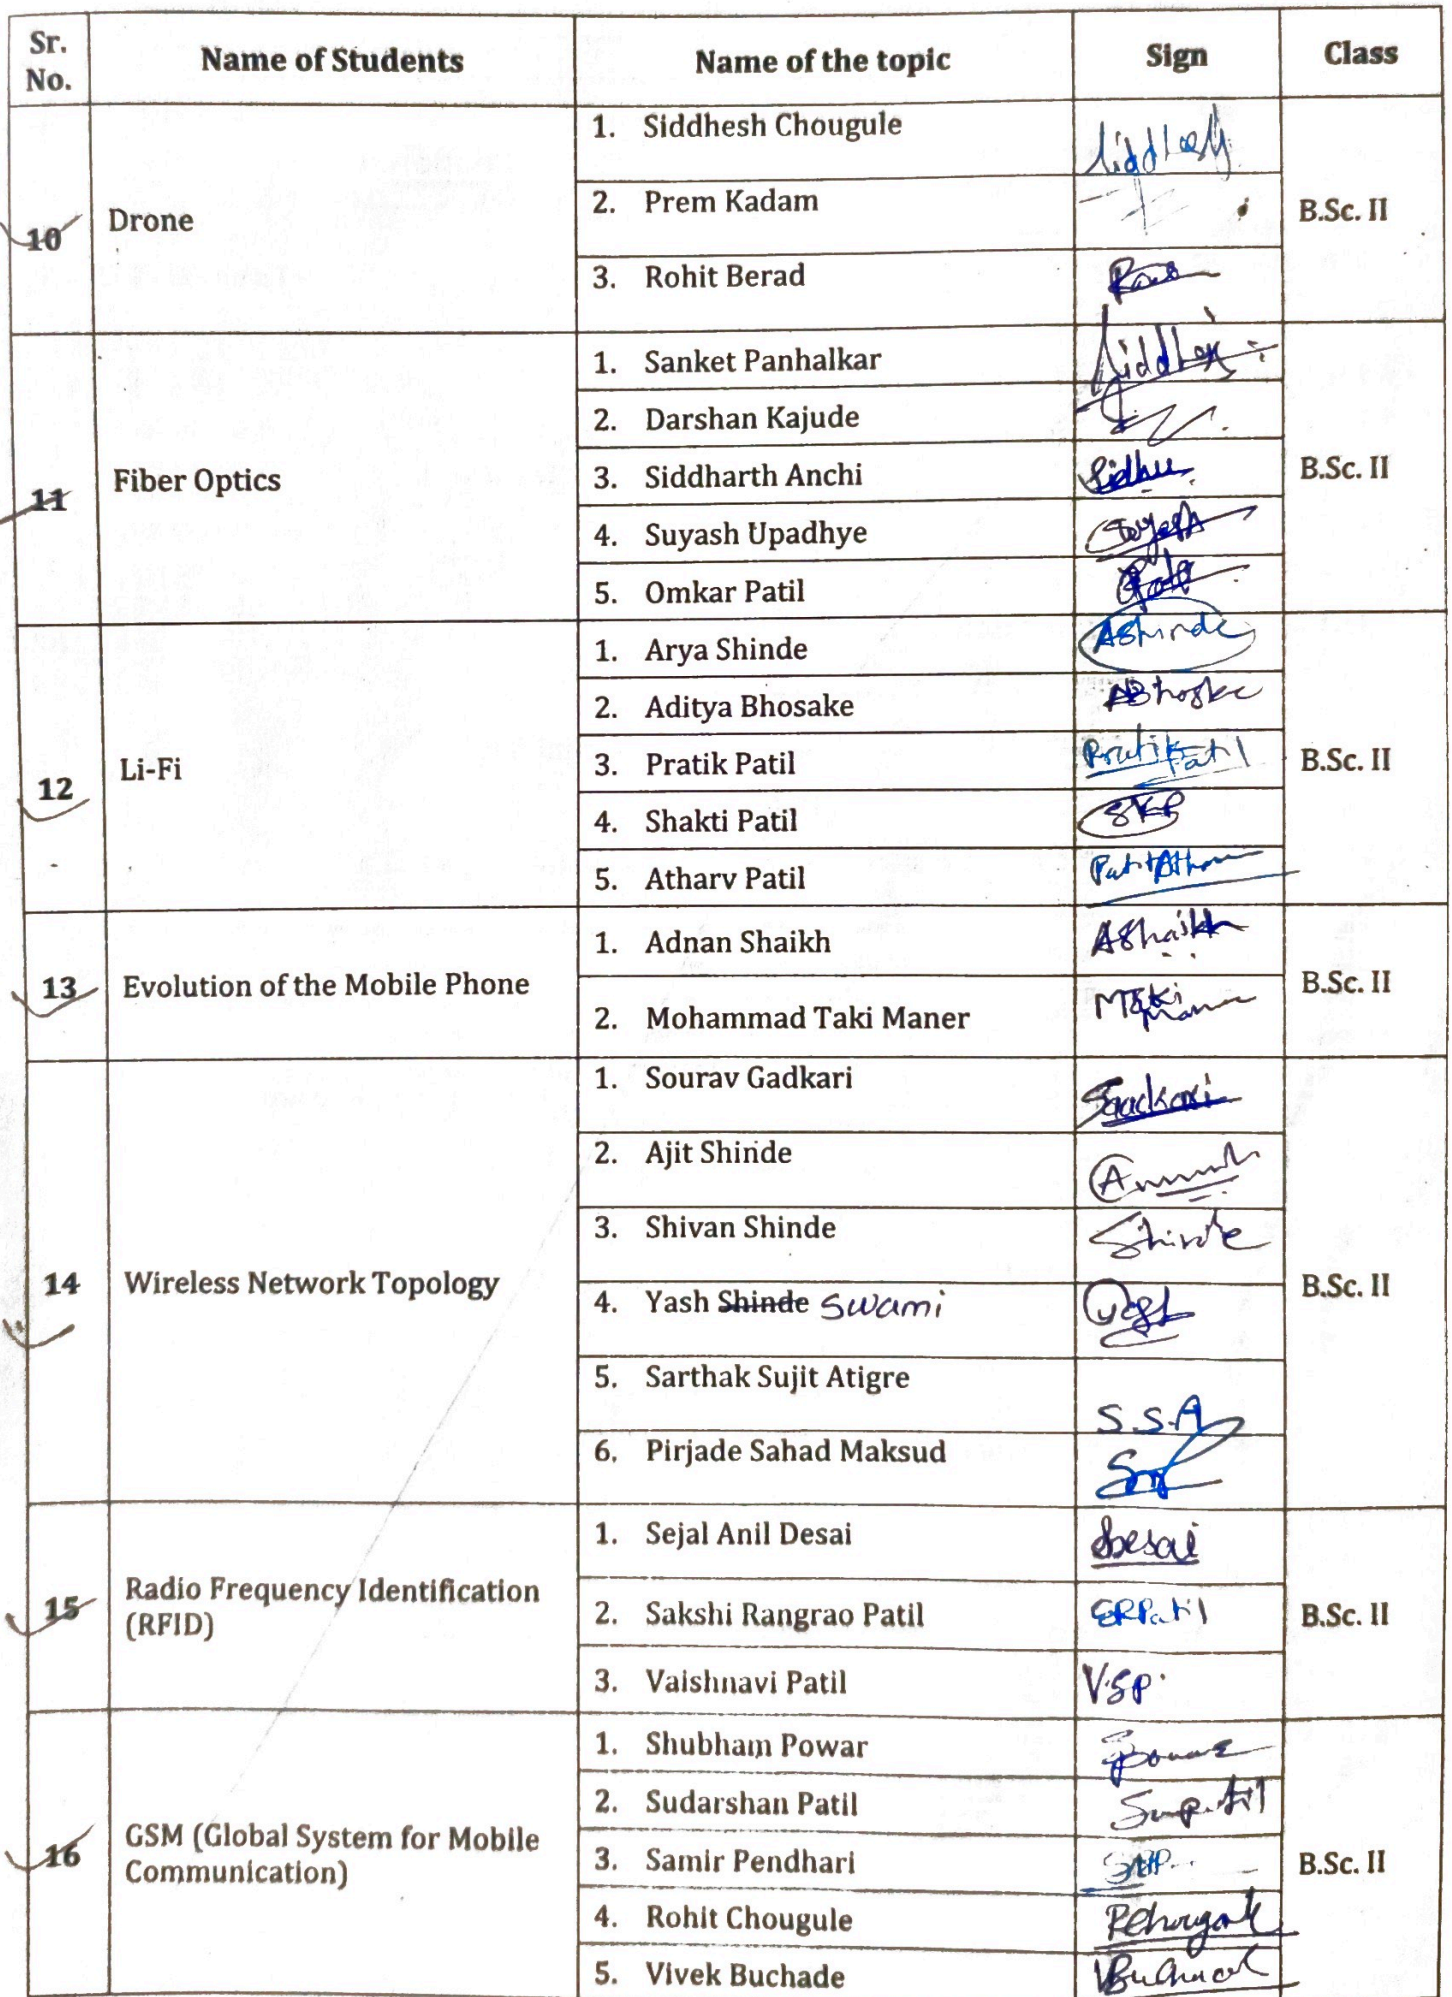 Sr. No.
Name of Students
Name of the topic
Sign
Class
10
Drone
1. Siddhesh Chougule
Siddhesh
2. Prem Kadam
3. Rohit Berad
B.Sc. II
11
Fiber Optics
1. Sanket Panhalkar
2. Darshan Kajude
3. Siddharth Anchi
Sidhu
4. Suyash Upadhye
Suyash
5. Omkar Patil
B.Sc. II
12
Li-Fi
1. Arya Shinde
AShinde
2. Aditya Bhosake
ABhoske
3. Pratik Patil
Pratik Patil
4. Shakti Patil
SKP
5. Atharv Patil
Patil Atharv
B.Sc. II
13
Evolution of the Mobile Phone
1. Adnan Shaikh
AShaikh
2. Mohammad Taki Maner
MTaki
Maner
B.Sc. II
14
Wireless Network Topology
1. Sourav Gadkari
SGadkari
2. Ajit Shinde
3. Shivan Shinde
Shinde
4. Yash Shinde Swami
Yash
5. Sarthak Sujit Atigre
S.S.A
6. Pirjade Sahad Maksud
B.Sc. II
15
Radio Frequency Identification
(RFID)
1. Sejal Anil Desai
SDesai
2. Sakshi Rangrao Patil
SRPatil
3. Vaishnavi Patil
V.S.P.
B.Sc. II
16
GSM (Global System for Mobile
Communication)
1. Shubham Powar
2. Sudarshan Patil
3. Samir Pendhari
4. Rohit Chougule
RChougule
5. Vivek Buchade
VBuchade
B.Sc. II